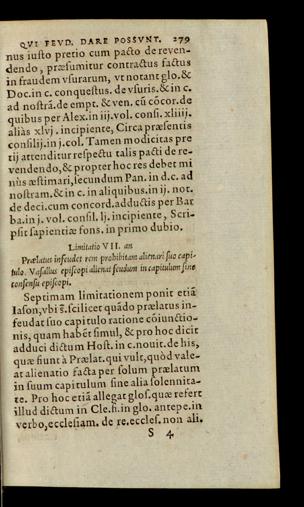 QVI FEVD. DARE POSSVNT. 279
nus iusto pretio cum pacto de reven-
dendo, præsumitur contractus factus
in fraudem vsurarum, vt notant glo. &
Doc. in c. conquestus. de vsuris. & in c.
ad nostrã. de empt. & ven. cũ cõcor. de
quibus per Alex. in iij. vol. consi. xliiij.
aliàs xlvj. incipiente, Circa præsentis
consilij. in j. col. Tamen modicitas pre
tij attenditur respectu talis pacti de re-
vendendo, & propter hoc res debet mi
nùs æstimari, secundum Pan. in d. c. ad
nostram. & in c. in aliquibus. in ij. not.
de deci. cum concord. adductis per Bar
ba. in j. vol. consil. lj. incipiente, Scri-
psit sapientiæ fons. in primo dubio.
Limitatio VII. an
Prælatus infeudet rem prohibitam alienari suo capi-
tulo. Vasallus episcopi alienat feudum in capitulum sine
consensu episcopi.
Septimam limitationem ponit etiã
Iason, vbi s̃. scilicet quãdo prælatus in-
feudat suo capitulo ratione cõiunctio-
nis, quam habẽt simul, & pro hoc dicit
adduci dictum Host. in c. nouit. de his,
quæ fiunt à Prælat. qui vult, quòd vale-
at alienatio facta per solum prælatum
in suum capitulum sine alia solennita-
te. Pro hoc etiã allegat glos. quæ refert
illud dictum in Cle. ij. in glo. antepe. in
verbo, ecclesiam. de re. eccles. non ali.
S 4